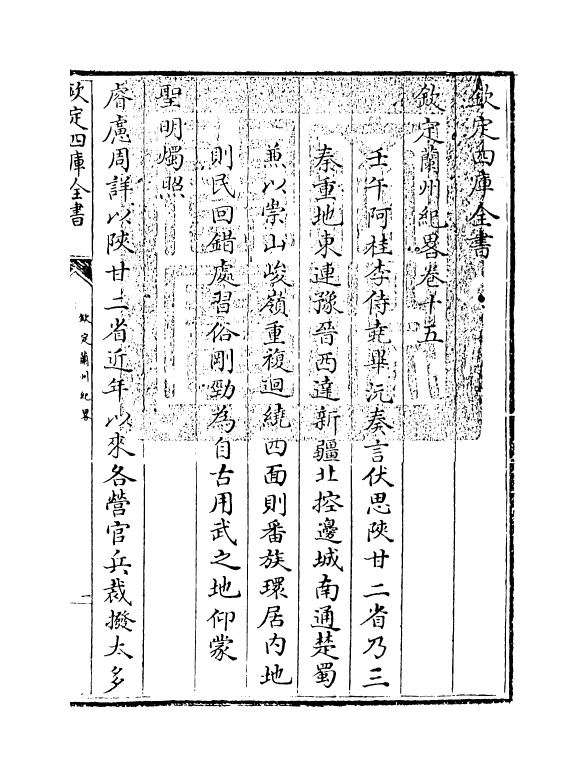 欽定四庫全書
欽定蘭州紀畧卷十五
壬午阿桂李侍堯畢沅奏言伏思陜甘二省乃三
秦重地東連豫晉西達新疆北控邊城南通楚蜀
兼以崇山峻嶺重複迴繞西面則番族環居内地
則民回錯處習俗剛勁為自古用武之地仰蒙
聖明燭照
睿慮周詳以陜甘二省近年以來各營官兵裁撥太多
欽定四庫全書
欽定蘭州紀畧
一